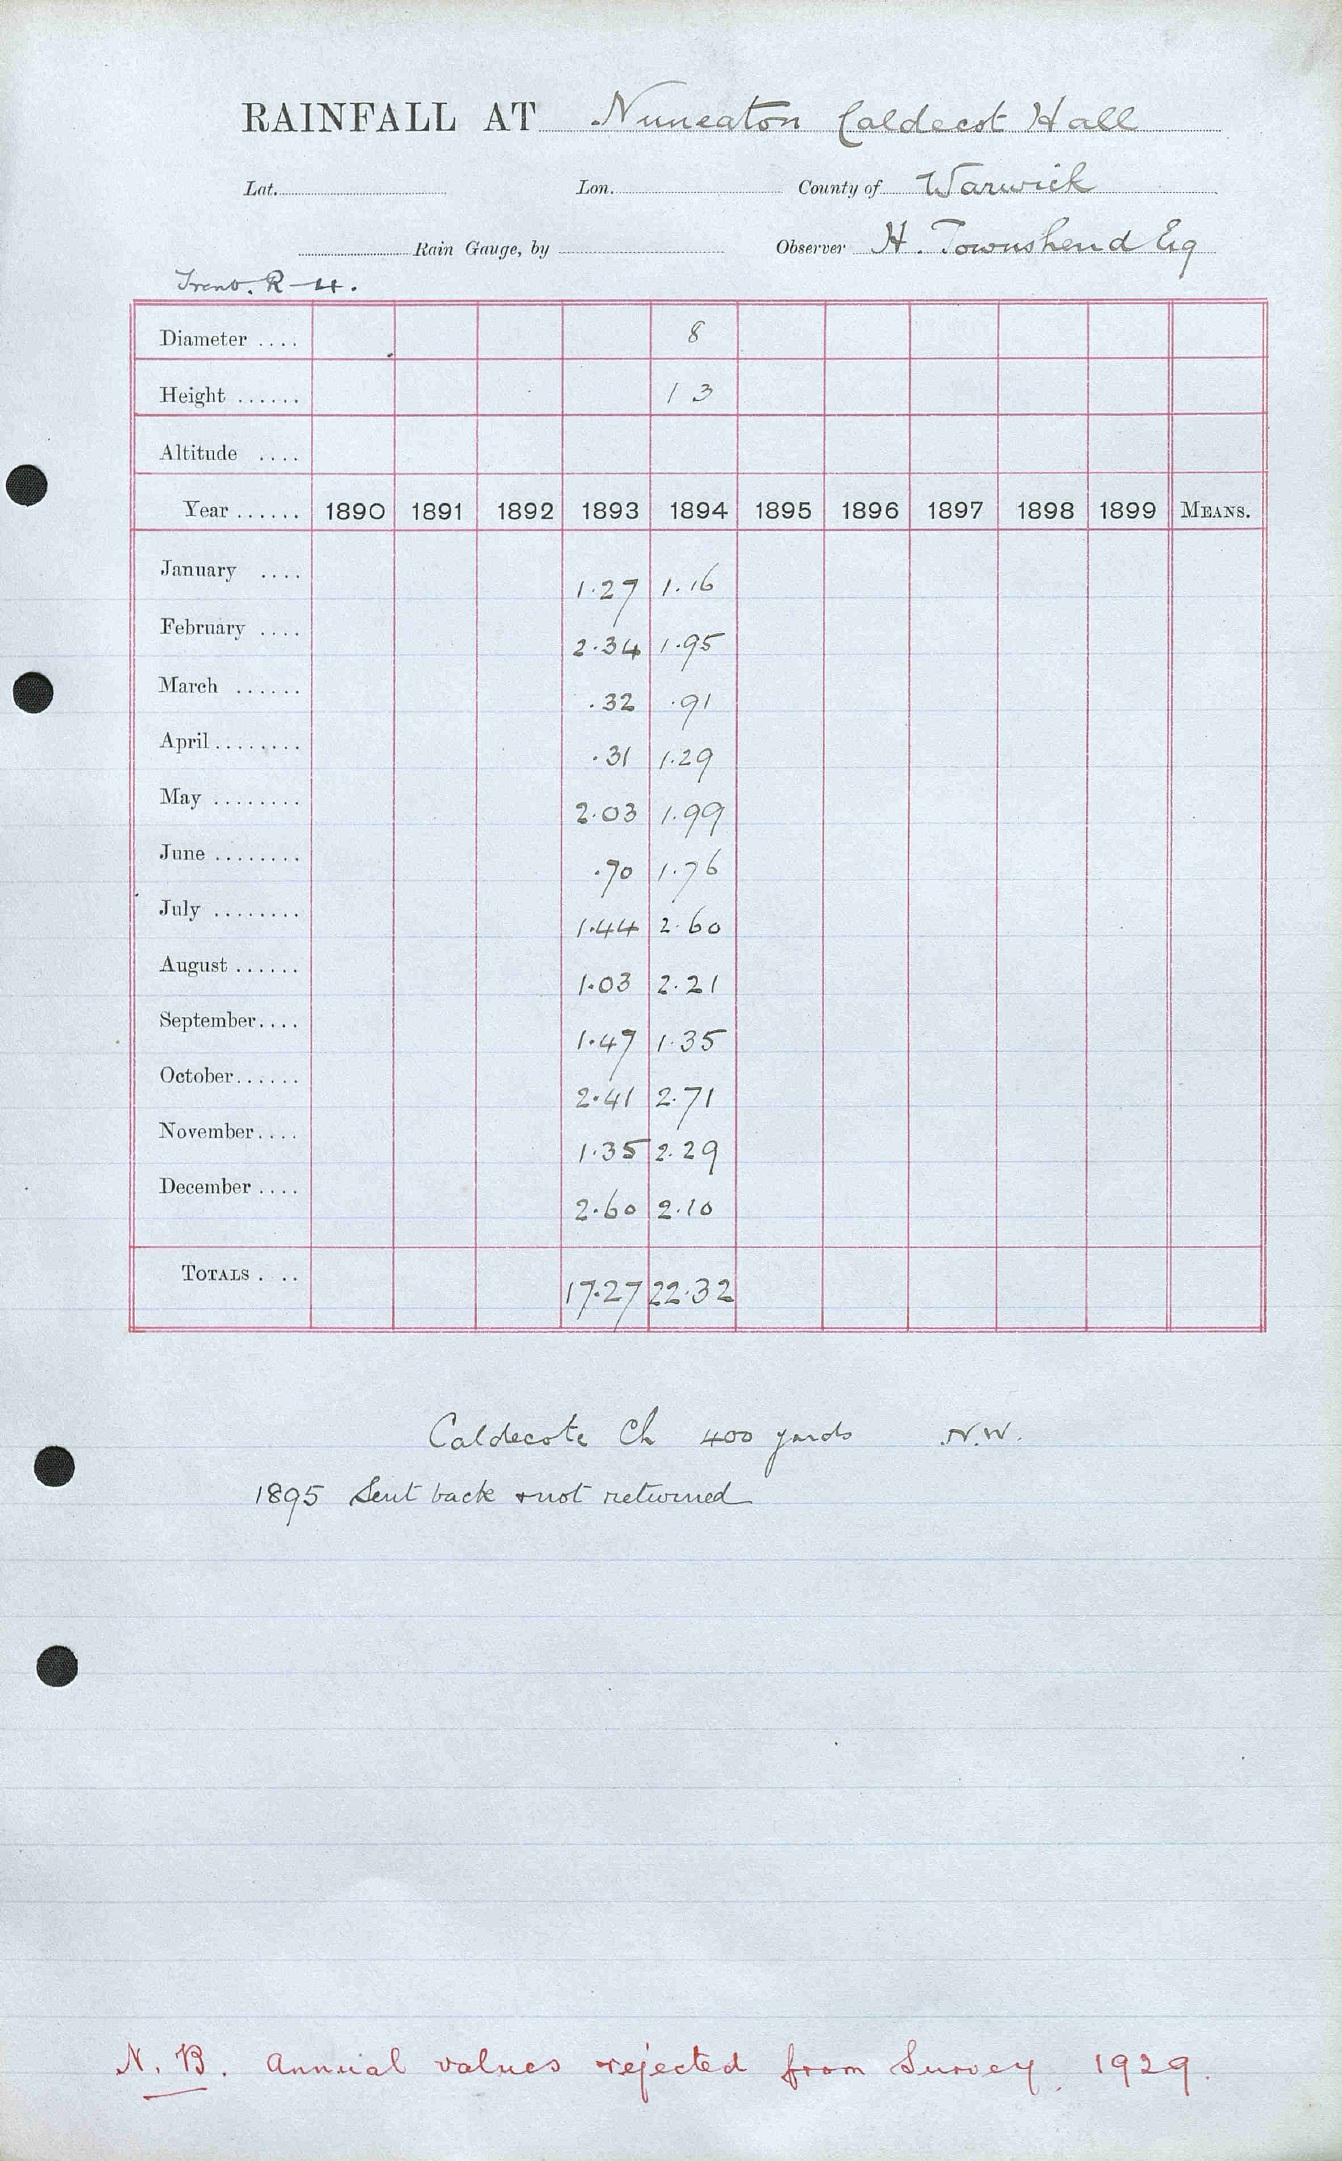 RAINFALL AT Nuneaton Caldecot Hall
Lat. Lon. County of Warwick
Rain Gauge, by Observer H. Townshend Esq
Trent. R-H.
Diameter .... 8
Height ...... 13
Altitude ....
Year ...... 1890 1891 1892 1893 1894 1895 1896 1897 1898 1899 MEANS.
January .... 1.27 1.16
February .... 2.34 1.95
March ...... .32 .91
April ........ .31 1.29
May ........ 2.03 1.99
June ........ .70 1.76
July ........ 1.44 2.60
August ...... 1.03 2.21
September.... 1.47 1.35
October...... 2.41 2.71
November.... 1.35 2.29
December .... 2.60 2.10
TOTALS . .. 17.27 22.32
Caldecote Ch 400 yards N.W.
1895 Sent back & not returned
N.B. Annual values rejected from Survey. 1929.